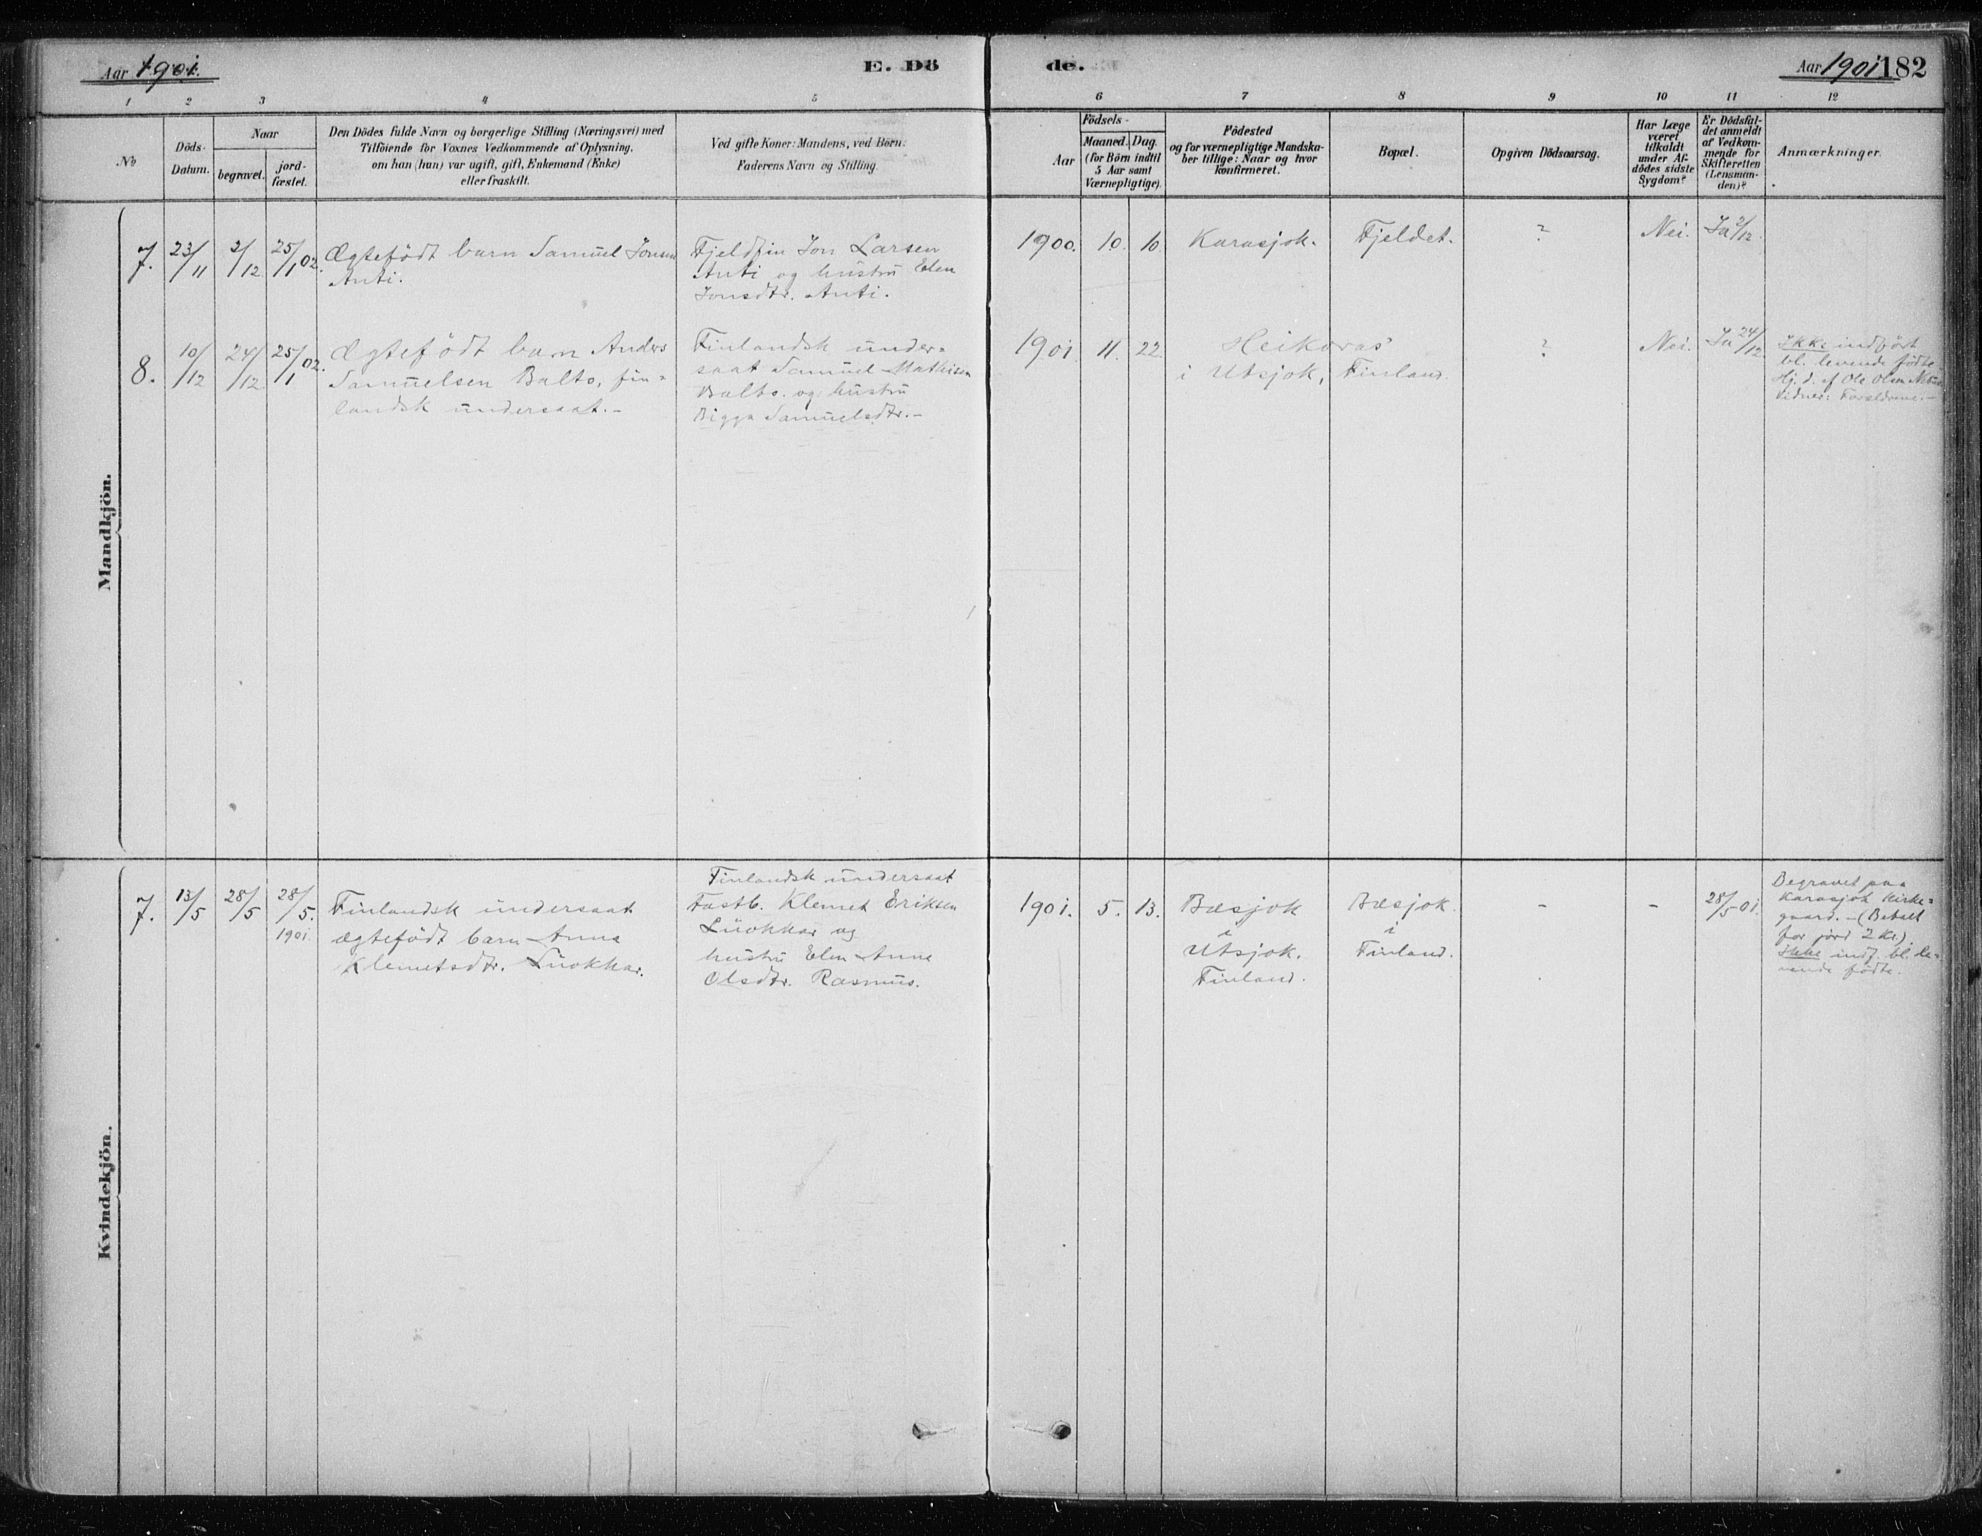 Aar 1901.
E. Dö
de.
Aar 1901 182
1 2 3 4 5 6 7 8 9 10 11 12
No
Döds-
Datum.
Naar
begravet.
jord-
fæstet.
Den Dödes fulde Navn og borgerlige Stilling (Næringsvei) med
Tilföiende for Voxnes Vedkommende af Oplysning,
om han (hun) var ugift, gift, Enkemand (Enke)
eller fraskilt.
Ved gifte Koner: Mandens, ved Börn:
Faderens Navn og Stilling.
Födsels-
Aar
Maaned. Dag.
(for Börn indtil
5 Aar samt
Værnepligtige).
Födested
og for værnepligtige Mandska-
ber tillige: Naar og hvor
konfirmeret.
Bopæl.
Opgiven Dödsaarsag.
Har Læge
været
tilkaldt
under Af-
dödes sidste
Sygdom?
Er Dödsfal-
det anmeldt
af Vedkom-
mende for
Skifteretten
(Lensman-
den)?
Anmærkninger.
Mandkjön.
7. 23/11 2/12 25/1 02.
Ægtefödt barn Samuel Jonsen
Anti.
Fjeldfin Jon Larsen
Anti og hustru Elen
Jonsdtr. Anti.
1900. 10. 10. Karasjok. Fjeldet. ? Nei. Ja 2/12.
8. 10/12 24/12 25/1 02.
Ægtefödt barn Anders
Samuelsen Balto, fin-
landsk undersaat.-
Finlandsk under-
saat Samuel Mathisen
Balto. og hustru
Bigga Samuelsdtr.-
1901 11. 22. Heikoras
i Utsjok, Finland. ? Nei. Ja 24/12.
Ikke indfört
bl. levende födte
Hj. d. af Ole Olsen
Vidner: Foreldrene.-
Kvindekjön.
7. 13/5 28/5 28/5. 1901.
Finlandsk undersaat
ægtefödt barn Anna
Klemetsdtr. Luokkar.
Finlandsk undersaat
Fastb. Klemet Eriksen
Luokkar og
hustru Elen Anna
Olsdtr. Rasmus.
1901. 5. 13. Bæsjok
i
Utsjok.
Finland.
Bæsjok.
i
Finland.
- - 28/5 01.
Begravet paa
Karasjok Kirke-
gaard.-(Betalt
for jord 2 Kr.)
Ikke indf. bl. le-
vende födte.